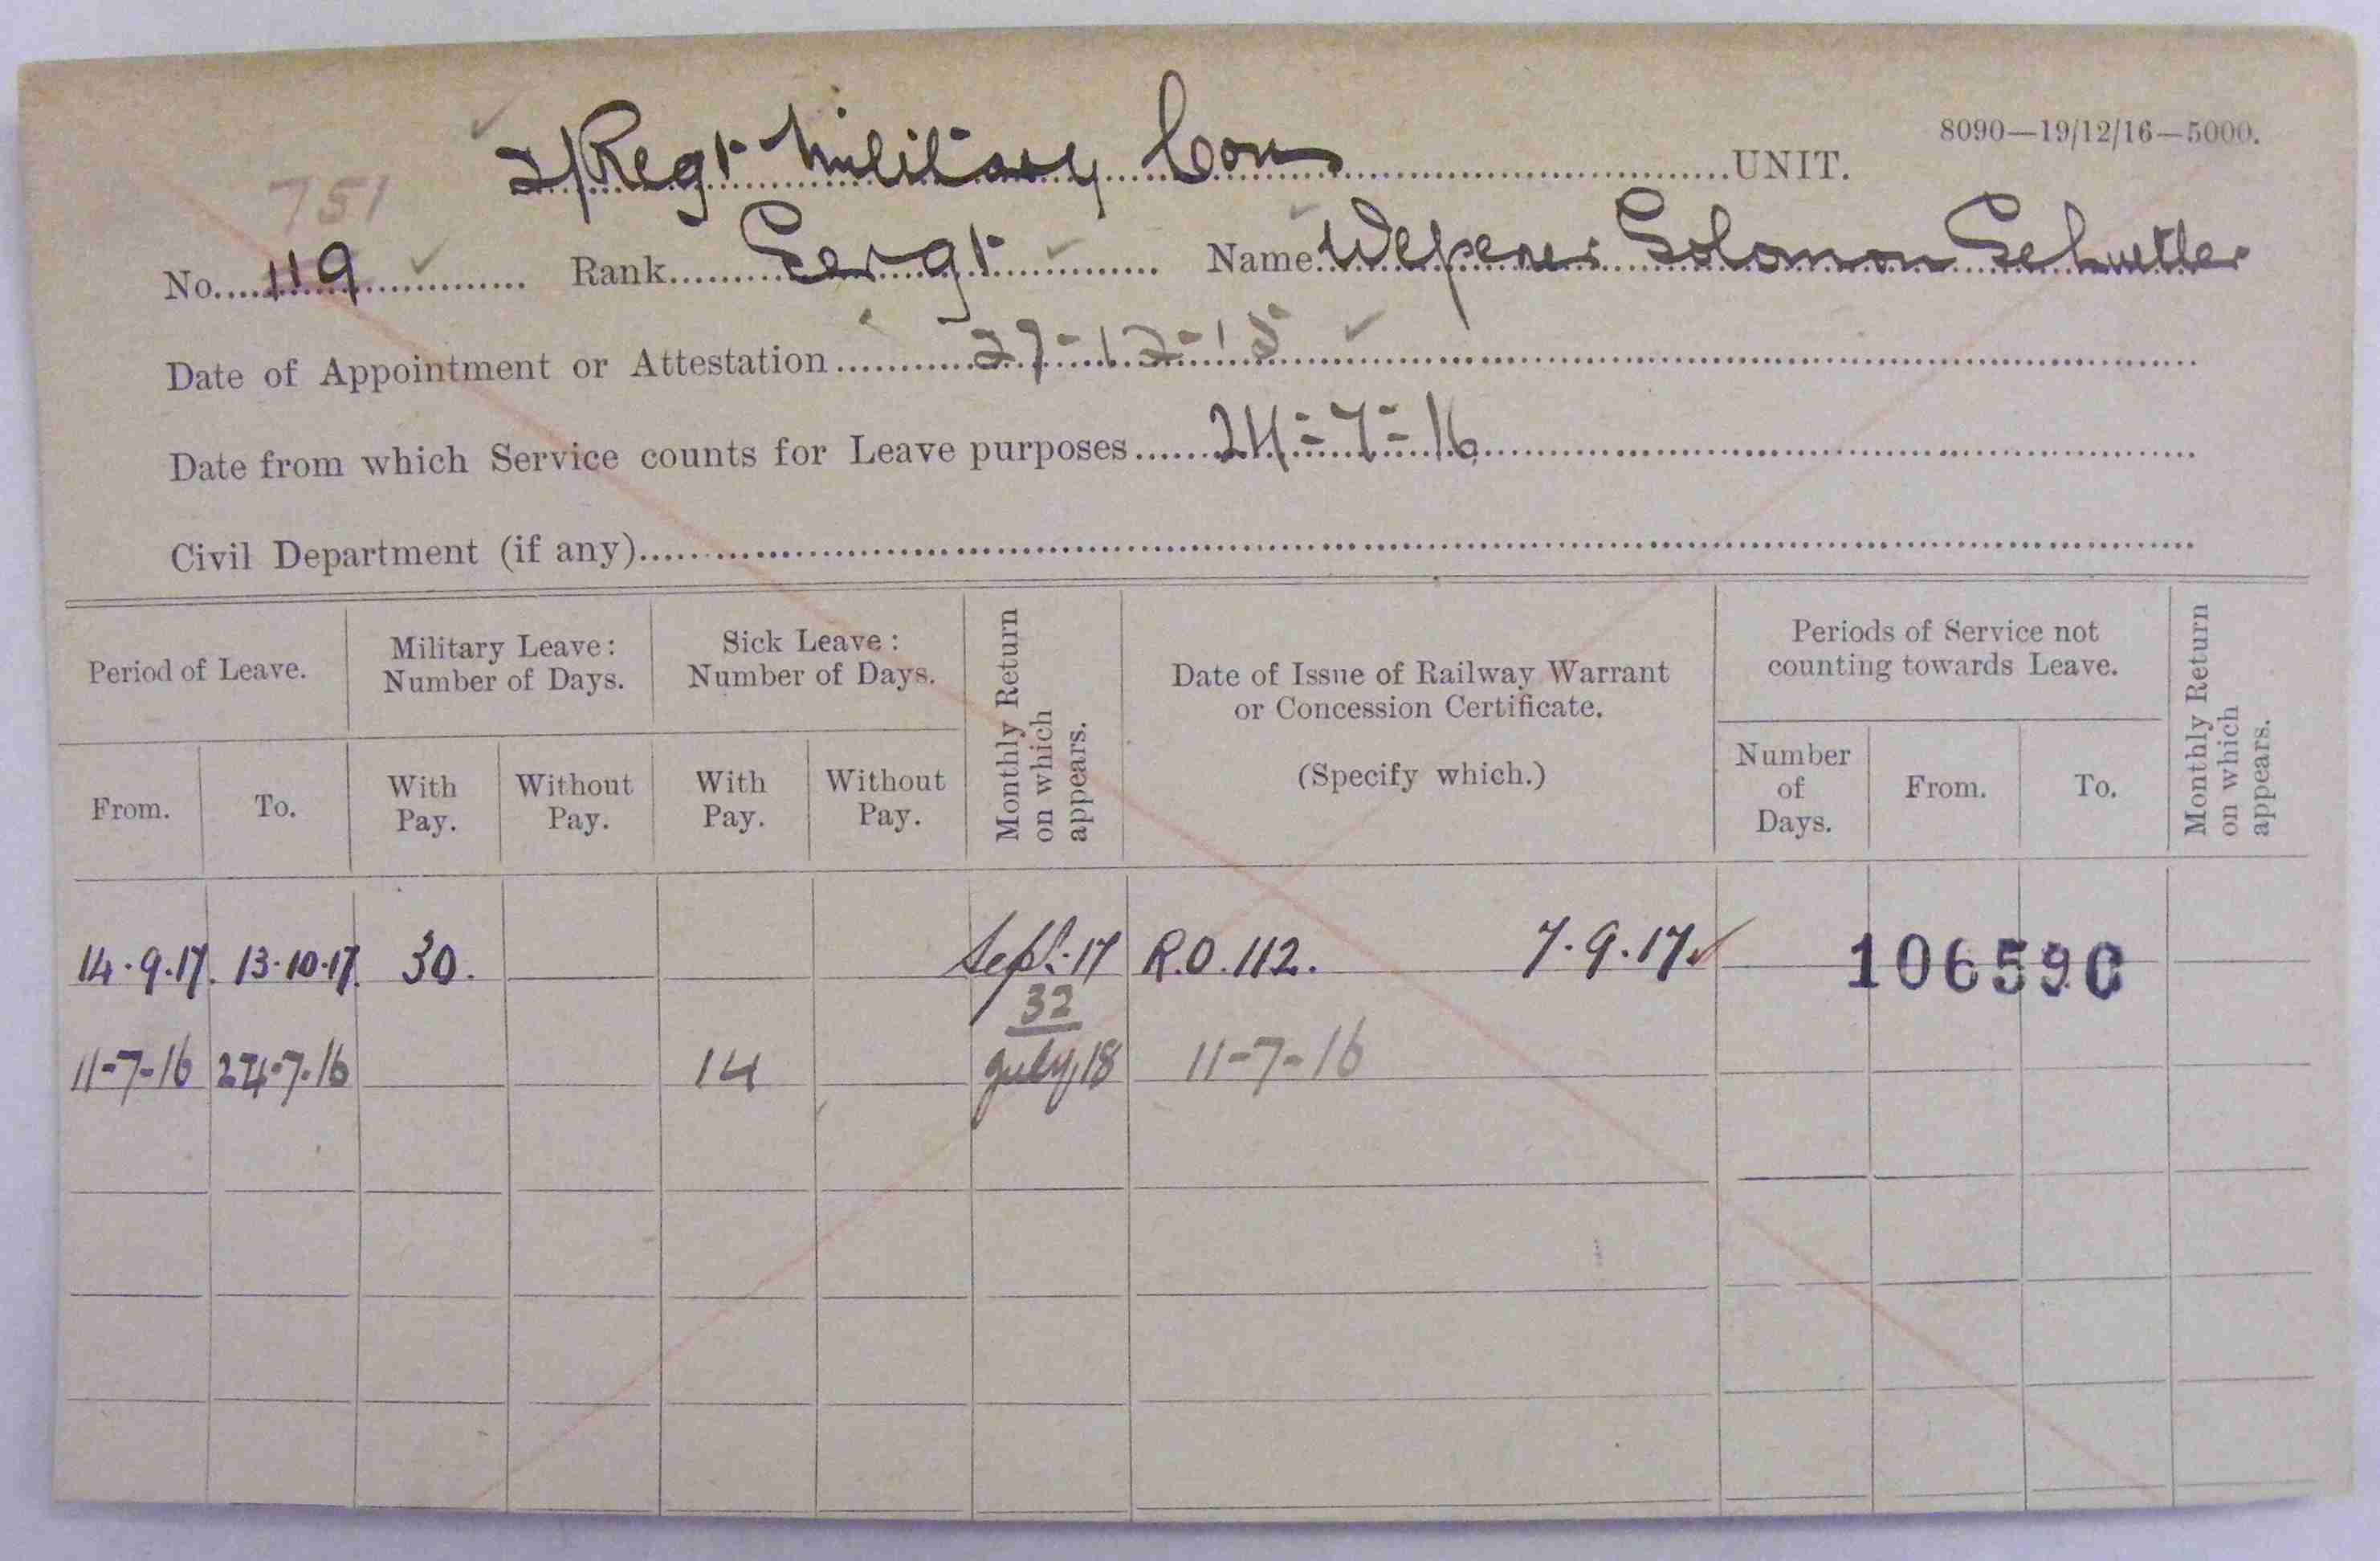 8090—19/12/16—5000.
2/Regt Military Con UNIT.
751
No. 119 Rank Sergt Name Wepener Solomon
Date of Appointment or Attestation 27-12-15
Date from which Service counts for Leave purposes 24-7-16
Civil Department (if any)
Period of Leave. Military Leave: Number of Days. Sick Leave: Number of Days. Monthly Return on which appears. Date of Issue of Railway Warrant or Concession Certificate. (Specify which.) Periods of Service not counting towards Leave. Monthly Return on which appears.
From. To. With Pay. Without Pay. With Pay. Without Pay. Number of Days. From. To.
14.9.17. 13.10.17. 30. Sept.17 R.O.112. 7.9.17. 106590
32
11-7-16 24.7.16 14 July,18 11-7-16